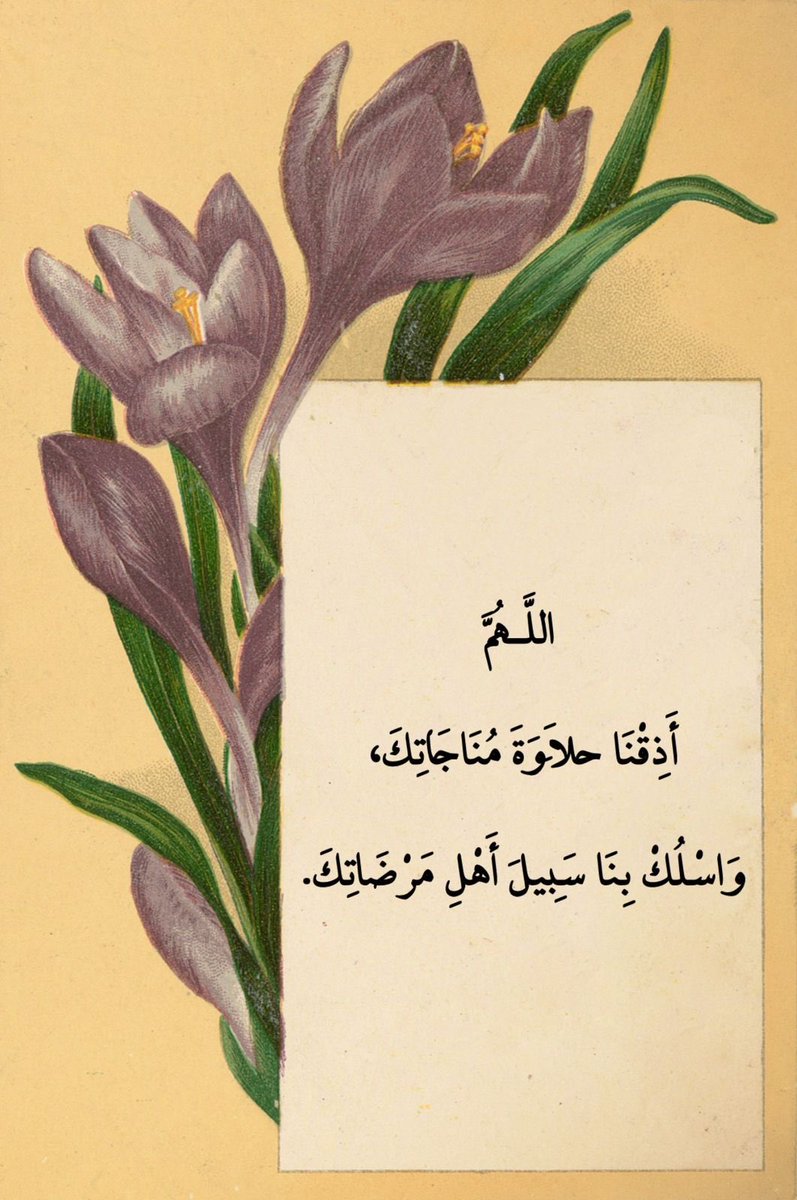 اللَّـهُمَّ
أَذِقْنَا حلاَوَةَ مُنَاجَاتِكَ،
وَاسْلُكْ بِنَا سَبِيلَ أَهْلِ مَرْضَاتِكَ.